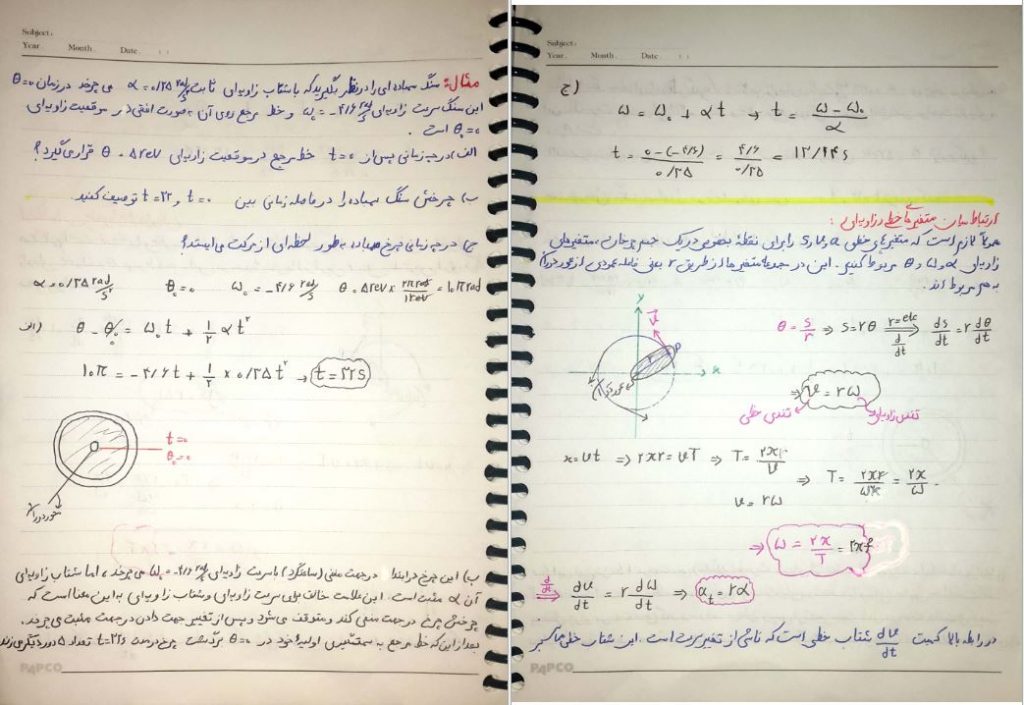 Subject:
Year. Month. Date. ( )
مثال: سنگ سمباده ای را در نظر بگیرید که با شتاب زاویه ای ثابت α = ۰/۳۵ rad/s² می چرخد در زمان
این سنگ سرعت زاویه ای ω₀ = -۴/۶ rad/s و خط مرجع روی آن به صورت افقی در موقعیت زاویه ای
θ₀ = ۰ است.
الف) در چه زمانی پس از t = ۰ خط مرجع در موقعیت زاویه ای θ = ۵ rev قرار می گیرد؟
ب) چرخش سنگ سمباده را در فاصله زمانی بین t = ۰ و t = ۳۲ توصیف کنید.
ج) در چه زمانی چرخ سمباده به طور لحظه ای از حرکت می ایستد؟
α = ۰/۳۵ rad/s² θ₀ = ۰ ω₀ = -۴/۶ rad/s θ = ۵ rev × ۲π rad / ۱ rev = ۱۰π rad
الف) θ - θ₀ = ω₀t + ۱/۲ αt²
۱۰π = -۴/۶ t + ۱/۲ × ۰/۳۵ t² → t = ۳۲ s
t = ۰
θ₀ = ۰
محور دوران
ب) این چرخ در ابتدا در جهت منفی (ساعتگرد) با سرعت زاویه ای ω₀ = -۴/۶ rad/s می چرخد، اما شتاب زاویه ای
آن α مثبت است. این علامت مخالف برای سرعت زاویه ای و شتاب زاویه ای به این معنا است که
چرخش چرخ در جهت منفی کند و متوقف می شود و پس از تغییر جهت دادن در جهت مثبت می چرخد.
بعد از این که خط مرجع به سمتگیری اولیه خود در θ = ۰ برگشت چرخ در مدت t = ۳۲ s تعداد ۵ دور دیگر می زند
PAPCO
Subject:
Year. Month. Date. ( )
ج)
ω = ω₀ + αt → t = ω - ω₀ / α
t = ۰ - (-۴/۶) / ۰/۳۵ = ۴/۶ / ۰/۳۵ = ۱۳/۱۴ s
ارتباط میان متغیرهای خطی و زاویه ای:
عموماً لازم است که متغیرهای خطی s و v و a را برای نقطه بخصوص در یک جسم چرخان، متغیرهای
زاویه ای θ و ω و α مربوط کنیم. این دو مجموعه متغیرها از طریق r یعنی فاصله عمودی از محور دوران
به هم مربوط اند.
y
v
r
P
x
محور دوران
θ = s/r ⇒ s = rθ ⇒ r = cte d/dt ds/dt = r dθ/dt
⇒ v = rω
تندی خطی تندی زاویه ای
x = vt ⇒ ۲πr = vT ⇒ T = ۲πr/v
v = rω
⇒ T = ۲πr/ωr = ۲π/ω
⇒ ω = ۲π/T = ۲πf
d/dt ⇒ dv/dt = r dω/dt ⇒ aₜ = rα
در رابطه بالا کمیت dv/dt شتاب خطی است که ناشی از تغییر سرعت است. این شتاب خطی مماس بر
PAPCO